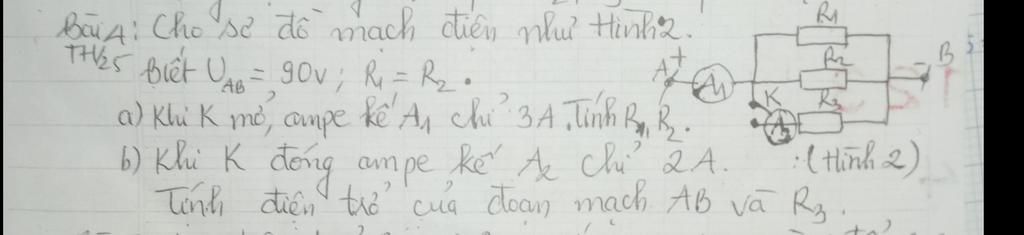 Bài 4: Cho sơ đồ mạch điện như Hình 2.
TH1/25
Biết U_AB = 90v; R1 = R2.
a) Khi K mở, ampe kế A1 chỉ 3A. Tính R1, R2.
b) Khi K đóng ampe kế A2 chỉ 2A.
Tính điện trở của đoạn mạch AB và R3.
R1
R2
A+
A1
- B
K
R3
A2
: (Hình 2)